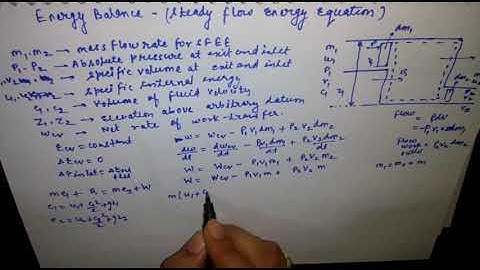 Energy Balance - (Steady flow Energy Equation)
m1, m2 → mass flow rate for SFEE
P1 - P2 → Absolute pressure at exit and inlet
→ Specific volume at exit and inlet
→ Specific internal energy
C1, C2 → Volume of fluid velocity
Z1, Z2 → elevation above arbitrary datum
Wcv → Net rate of work-transfer
Ecv = constant
ΔEcv = 0
At inlet =
me1 + = me2 + W
e1 = u1 + C1²/2 + gz1
e2 = u2 + C2²/2 + gz2
W = Wcv - P1v1dm1 + P2v2dm2
dW/dt = dWcv/dt - P1v1dm1/dt + P2v2dm2/dt
W = Wcv - P1v1m1 + P2v2m2
W = Wcv - P1v1m + P2v2m
m(u1 + C
dm1
m1
P1
Z1
dm2
flow = pdv
= -P1v1dm1
flow work
m1 = m2 = m